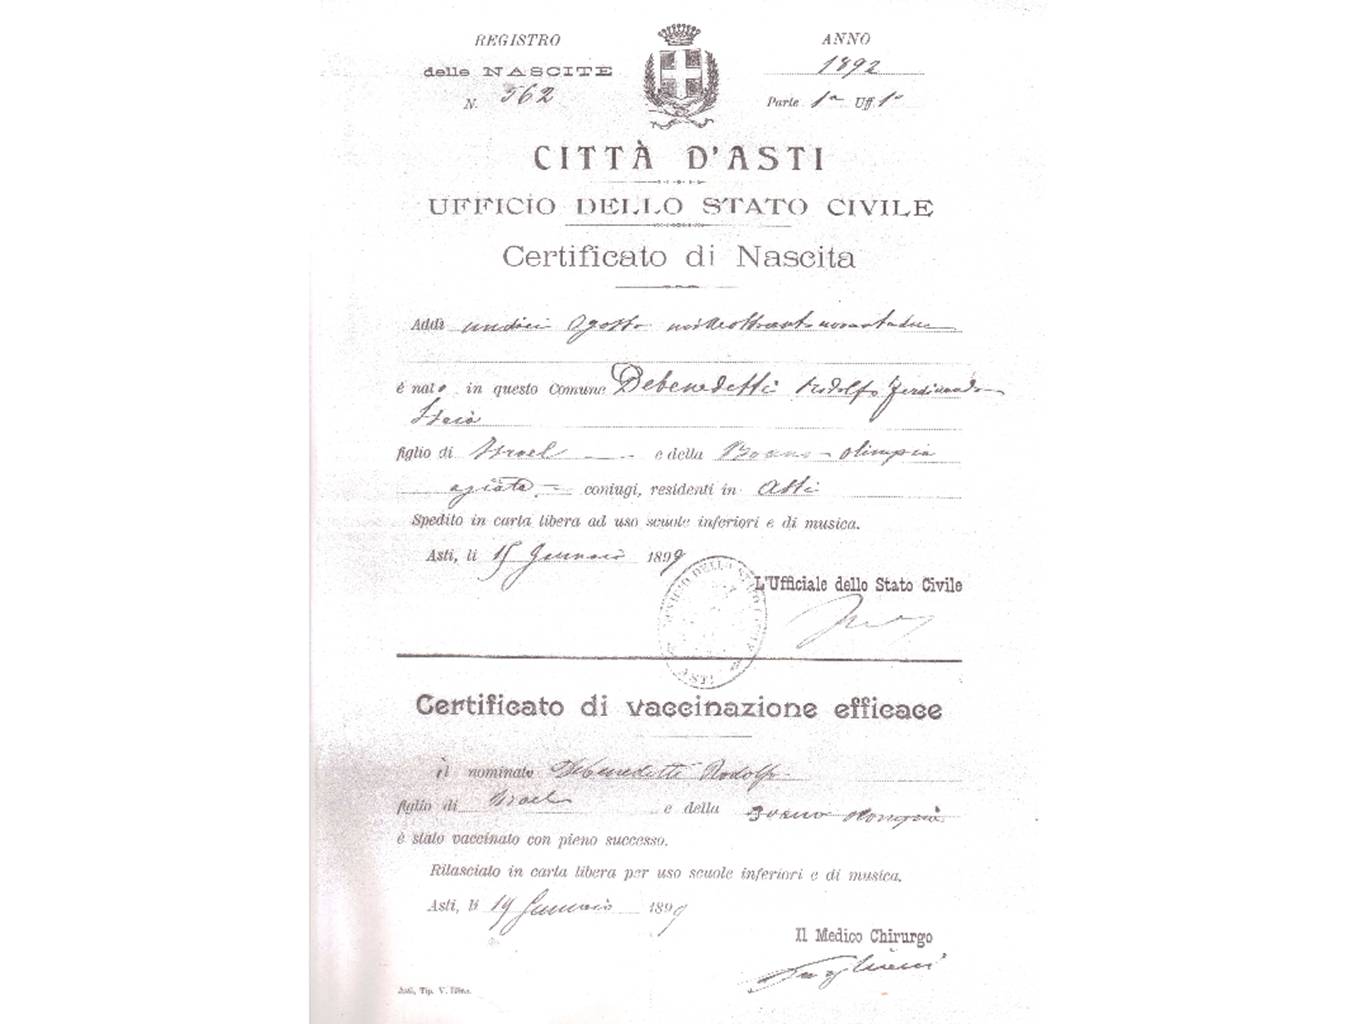 REGISTRO
delle NASCITE
N. 562
ANNO
1892
Parte 1a Uff. 1o
CITTÀ D'ASTI
UFFICIO DELLO STATO CIVILE
Certificato di Nascita
Addì undici Agosto milleottocentonovantadue
è nato in questo Comune Debenedetti Rodolfo Ferdinando
figlio di Israel e della Olimpia
agiata coniugi, residenti in Asti
Spedito in carta libera ad uso scuole inferiori e di musica.
Asti, li 15 Gennaio 1899
L'Ufficiale dello Stato Civile
UFFICIO DELLO STATO CIVILE
ASTI
Certificato di vaccinazione efficace
il nominato Debenedetti Rodolfo
figlio di Israel e della Olimpia
è stato vaccinato con pieno successo.
Rilasciato in carta libera per uso scuole inferiori e di musica.
Asti, li 19 Gennaio 1899
Il Medico Chirurgo
Asti, Tip. V.